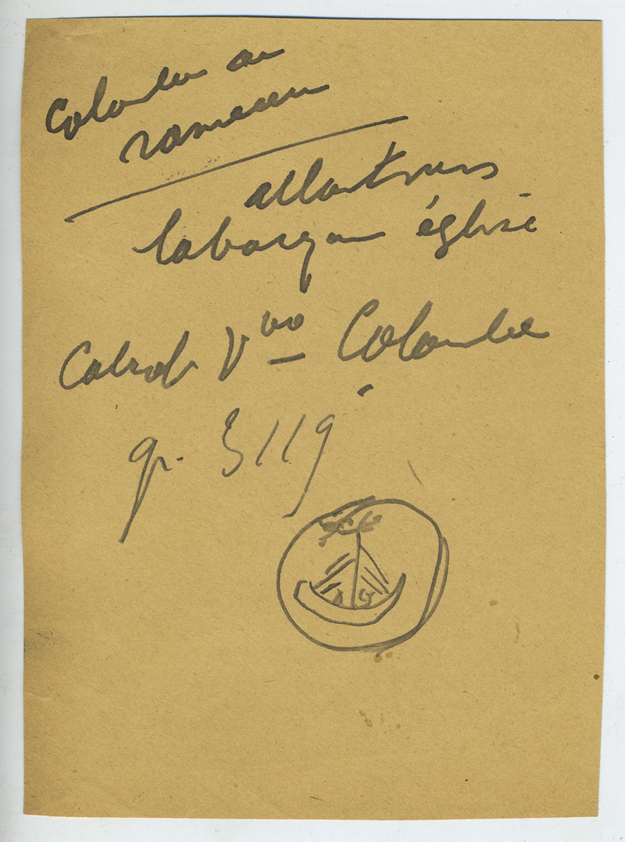 Colombe au
rameau
allant vers
la barque église
Cabrol Vbo Colombe
p. 3119